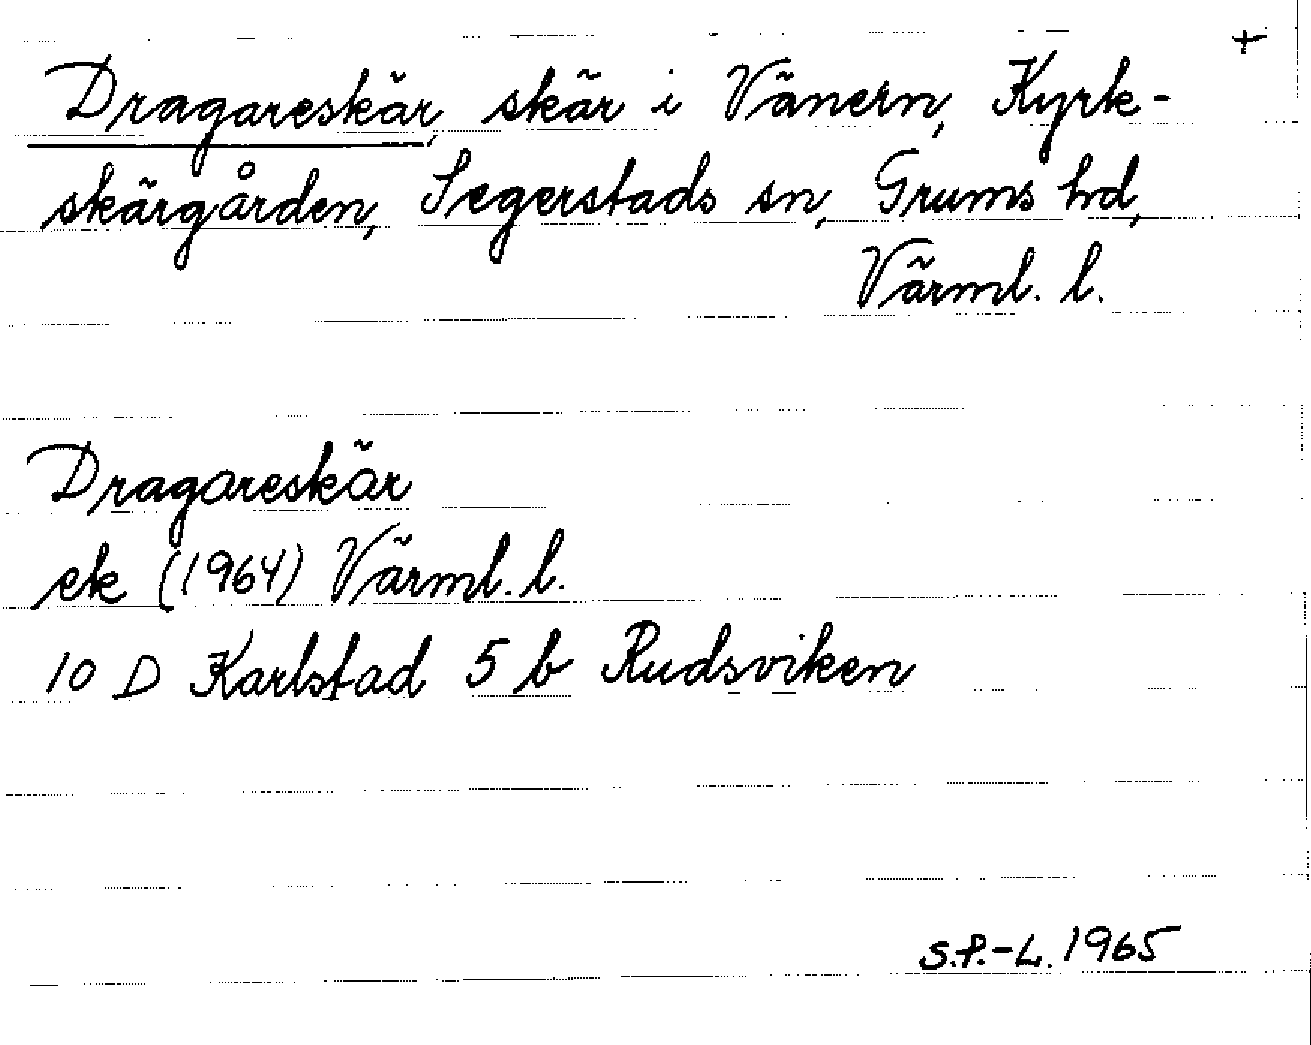 +
Dragareskär, skär i Vänern, Kyrk-
skärgården, Segerstads sn, Grums hd,
Värml. l.
Dragareskär
ek (1964) Värml. l.
10 D Karlstad 5 b Rudsviken
S.P.-L. 1965